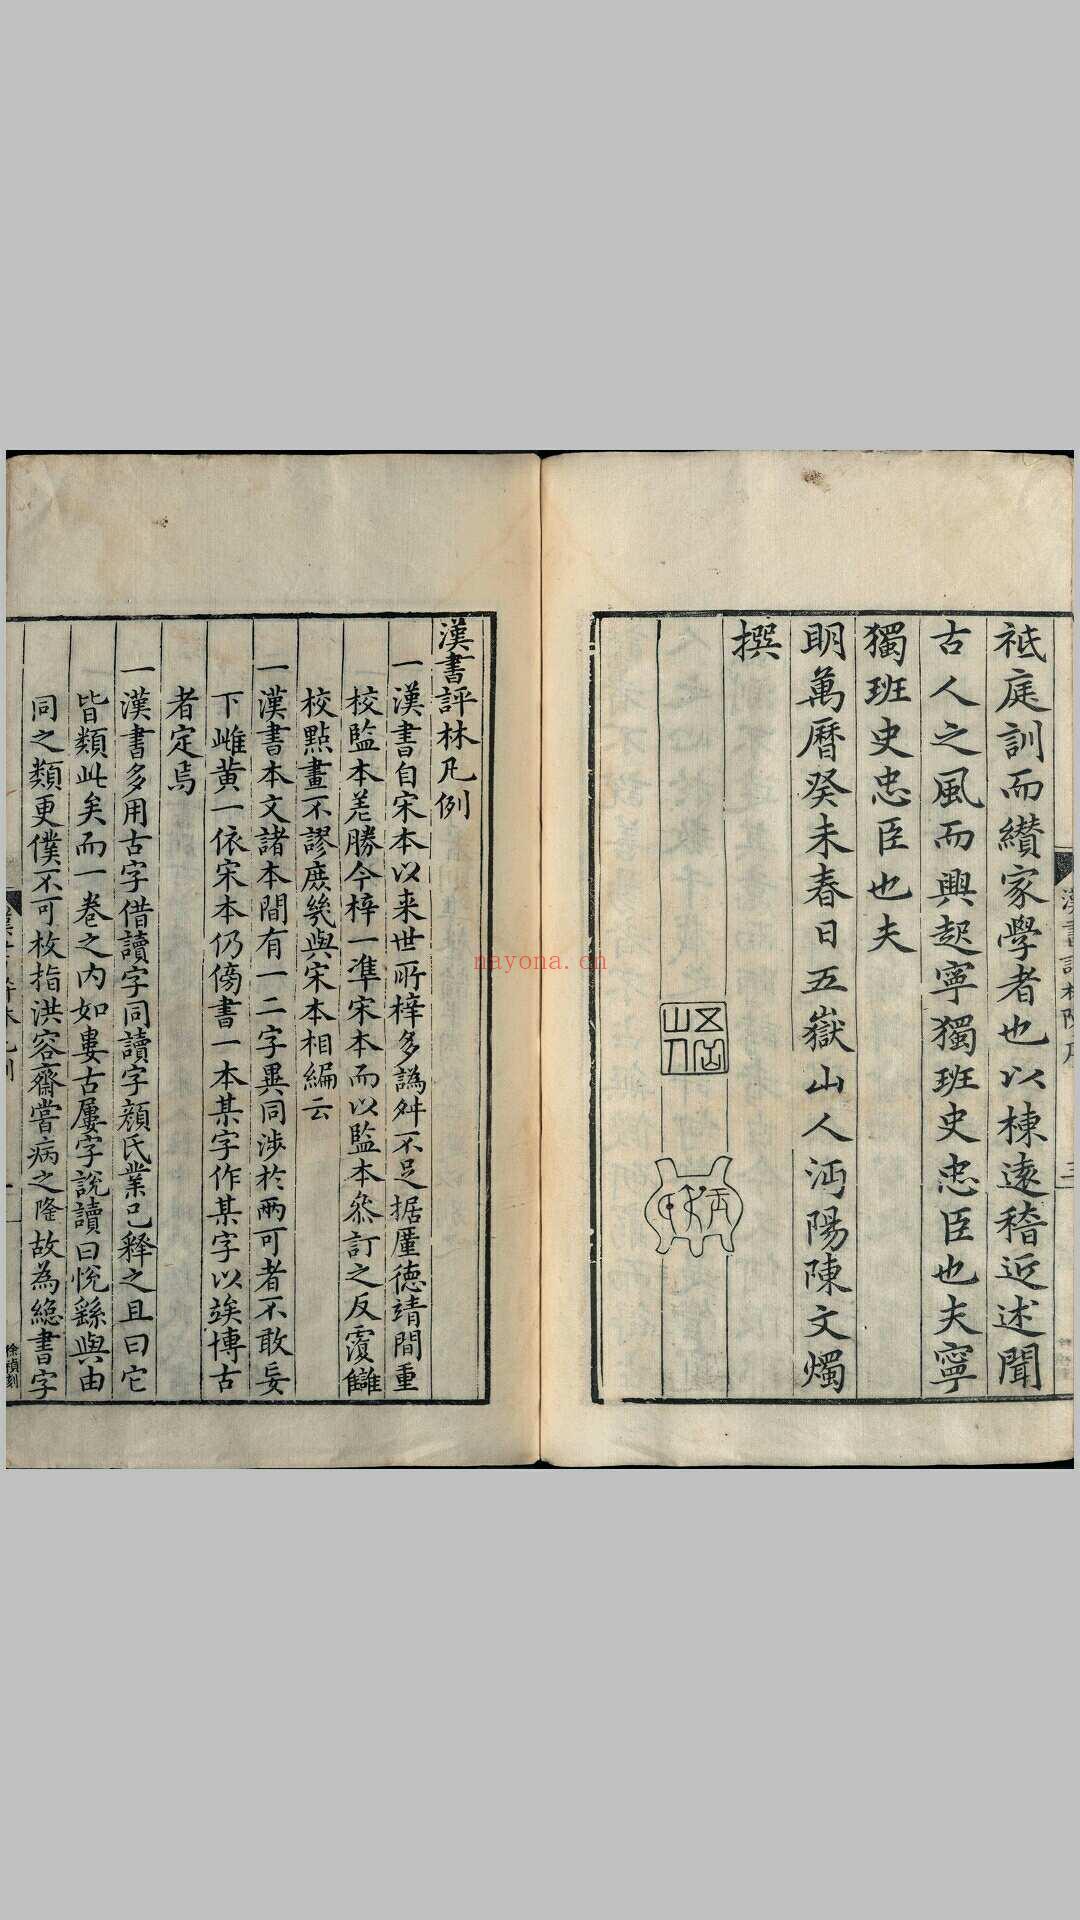 祗庭訓而纘家學者也以棟遠稽近述聞
古人之風而興起寧獨班史忠臣也夫寧
獨班史忠臣也夫
明萬曆癸未春日五嶽山人沔陽陳文燭
撰
漢書評林凡例
一漢書自宋本以来世所梓多譌舛不足据厪德靖間重
校監本差勝今梓一凖宋本而以監本叅訂之反覆讎
校點畫不謬庻幾與宋本相編云
一漢書本文諸本間有一二字異同涉於兩可者不敢妄
下雌黄一依宋本仍傍書一本某字作某字以竢博古
者定焉
一漢書多用古字借讀字同讀字顔氏業已釋之且曰它
皆類此矣而一卷之内如婁古屢字説讀曰悅繇與由
同之類更僕不可枚指洪容齋嘗病之隆故為緫書字
徐禎刻
nayona.cn